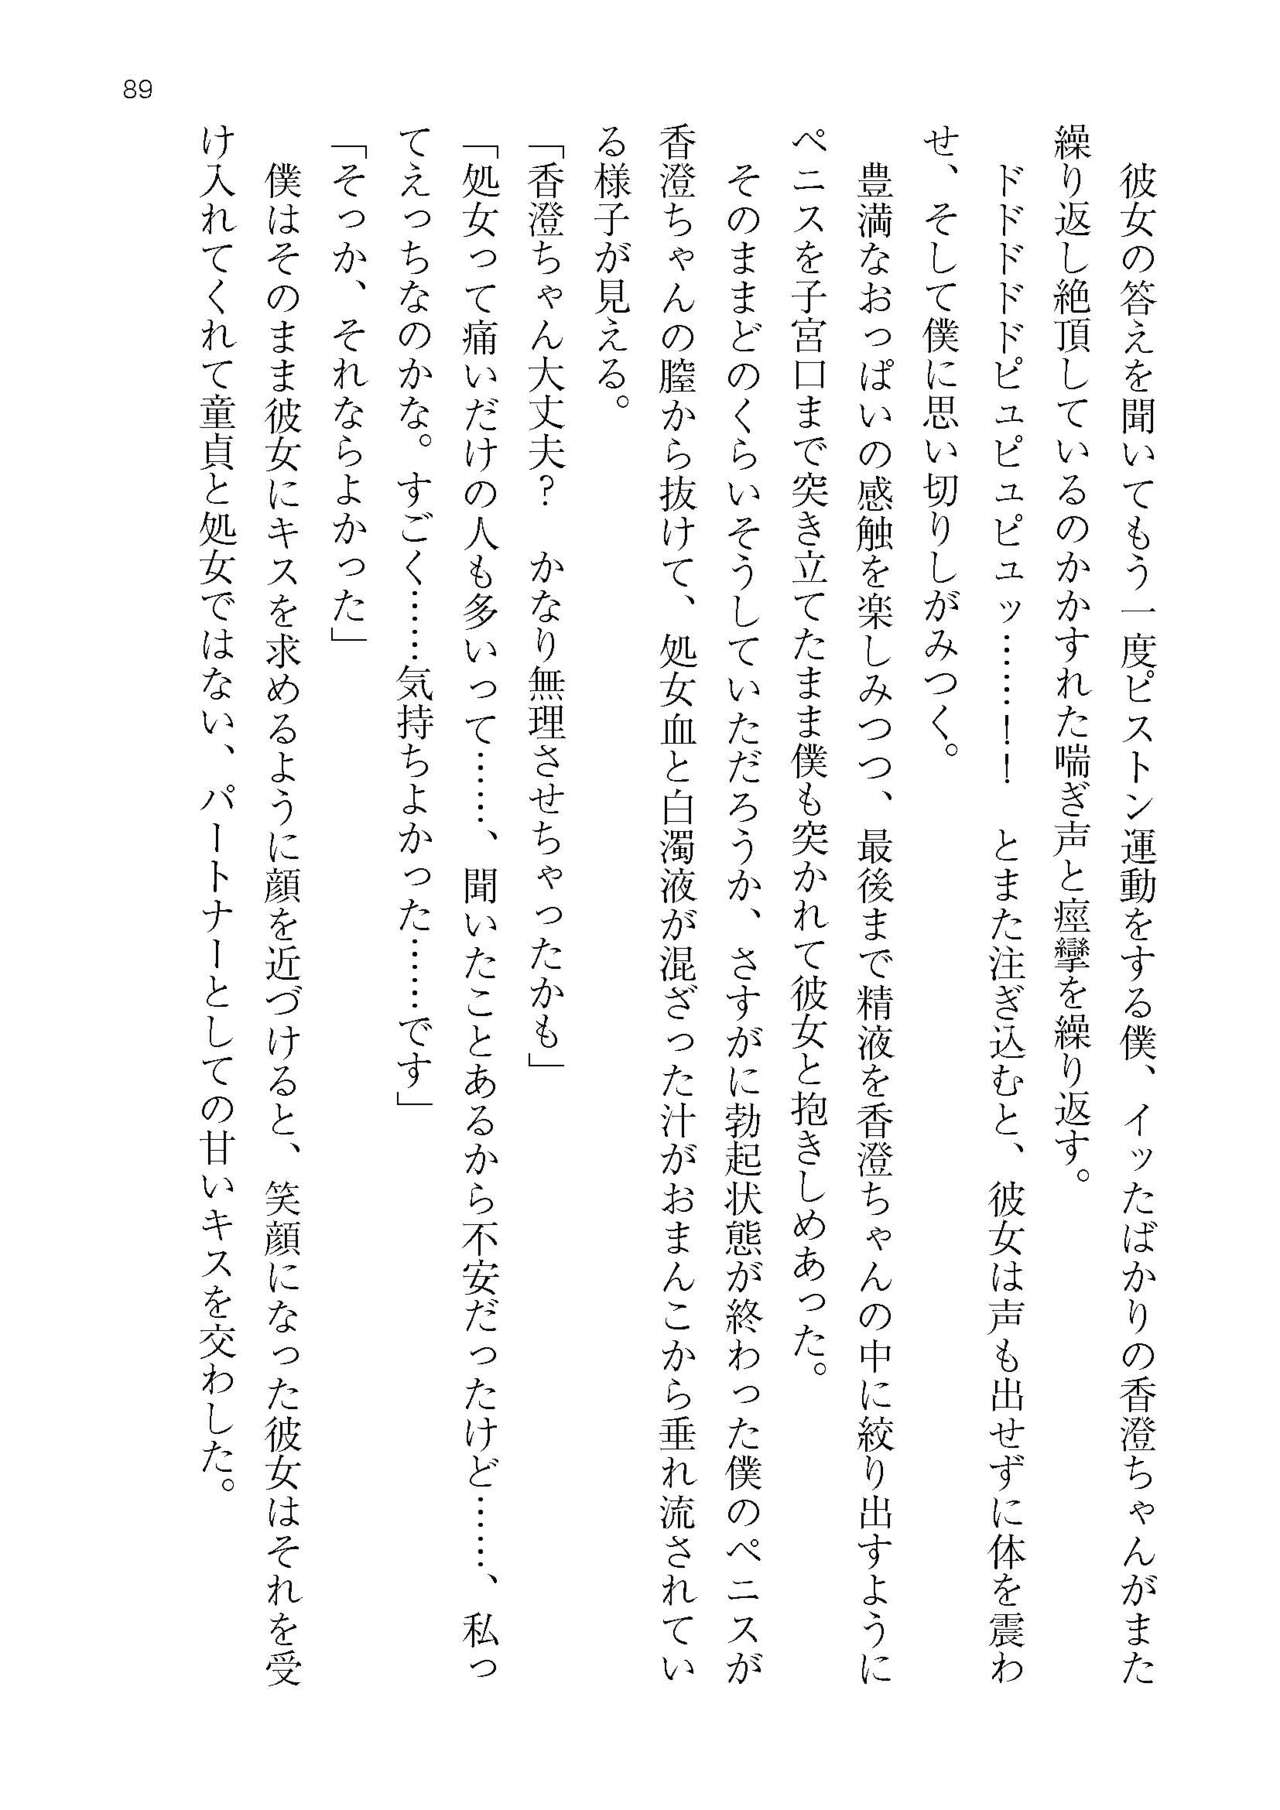 89
彼女の答えを聞いてもう一度ピストン運動をする僕、イッたばかりの香澄ちゃんがまた
繰り返し絶頂しているのかかすれた喘ぎ声と痙攣を繰り返す。
ドドドドドピュピュピュッ……！！　とまた注ぎ込むと、彼女は声も出せずに体を震わ
せ、そして僕に思い切りしがみつく。
豊満なおっぱいの感触を楽しみつつ、最後まで精液を香澄ちゃんの中に絞り出すように
ペニスを子宮口まで突き立てたまま僕も突かれて彼女と抱きしめあった。
そのままどのくらいそうしていただろうか、さすがに勃起状態が終わった僕のペニスが
香澄ちゃんの膣から抜けて、処女血と白濁液が混ざった汁がおまんこから垂れ流されてい
る様子が見える。
「香澄ちゃん大丈夫？　かなり無理させちゃったかも」
「処女って痛いだけの人も多いって……、聞いたことあるから不安だったけど……、私っ
てえっちなのかな。すごく……気持ちよかった……です」
「そっか、それならよかった」
僕はそのまま彼女にキスを求めるように顔を近づけると、笑顔になった彼女はそれを受
け入れてくれて童貞と処女ではない、パートナーとしての甘いキスを交わした。